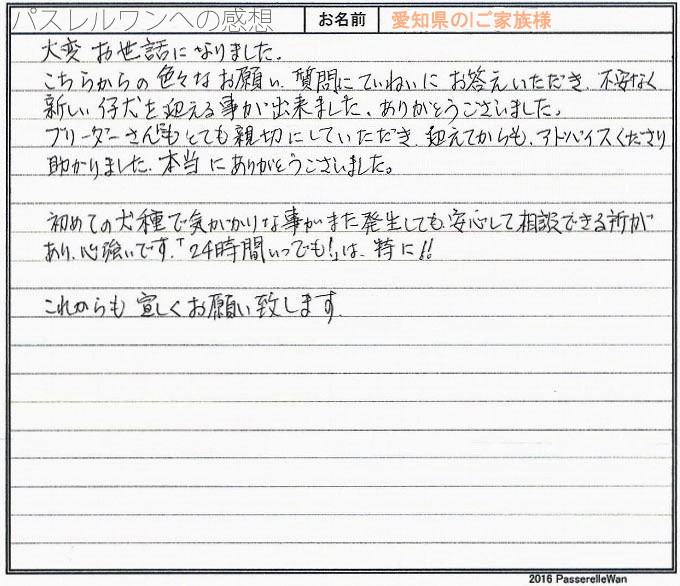 パスレルワンへの感想 お名前 愛知県のIご家族様
大変 お世話になりました。
こちらからの色々なお願い、質問にていねいに お答えいただき、不安なく
新しい仔犬を迎える事が出来ました。ありがとうございました。
ブリーダーさんもとても親切にしていただき、迎えてからも、アドバイスくださり
助かりました。本当にありがとうございました。
初めての犬種で気がかりな事がまた発生しても、安心して相談できる所が
あり、心強いです。「24時間いつでも!」は、特に!!
これからも 宜しくお願い致します。
2016 PasserelleWan